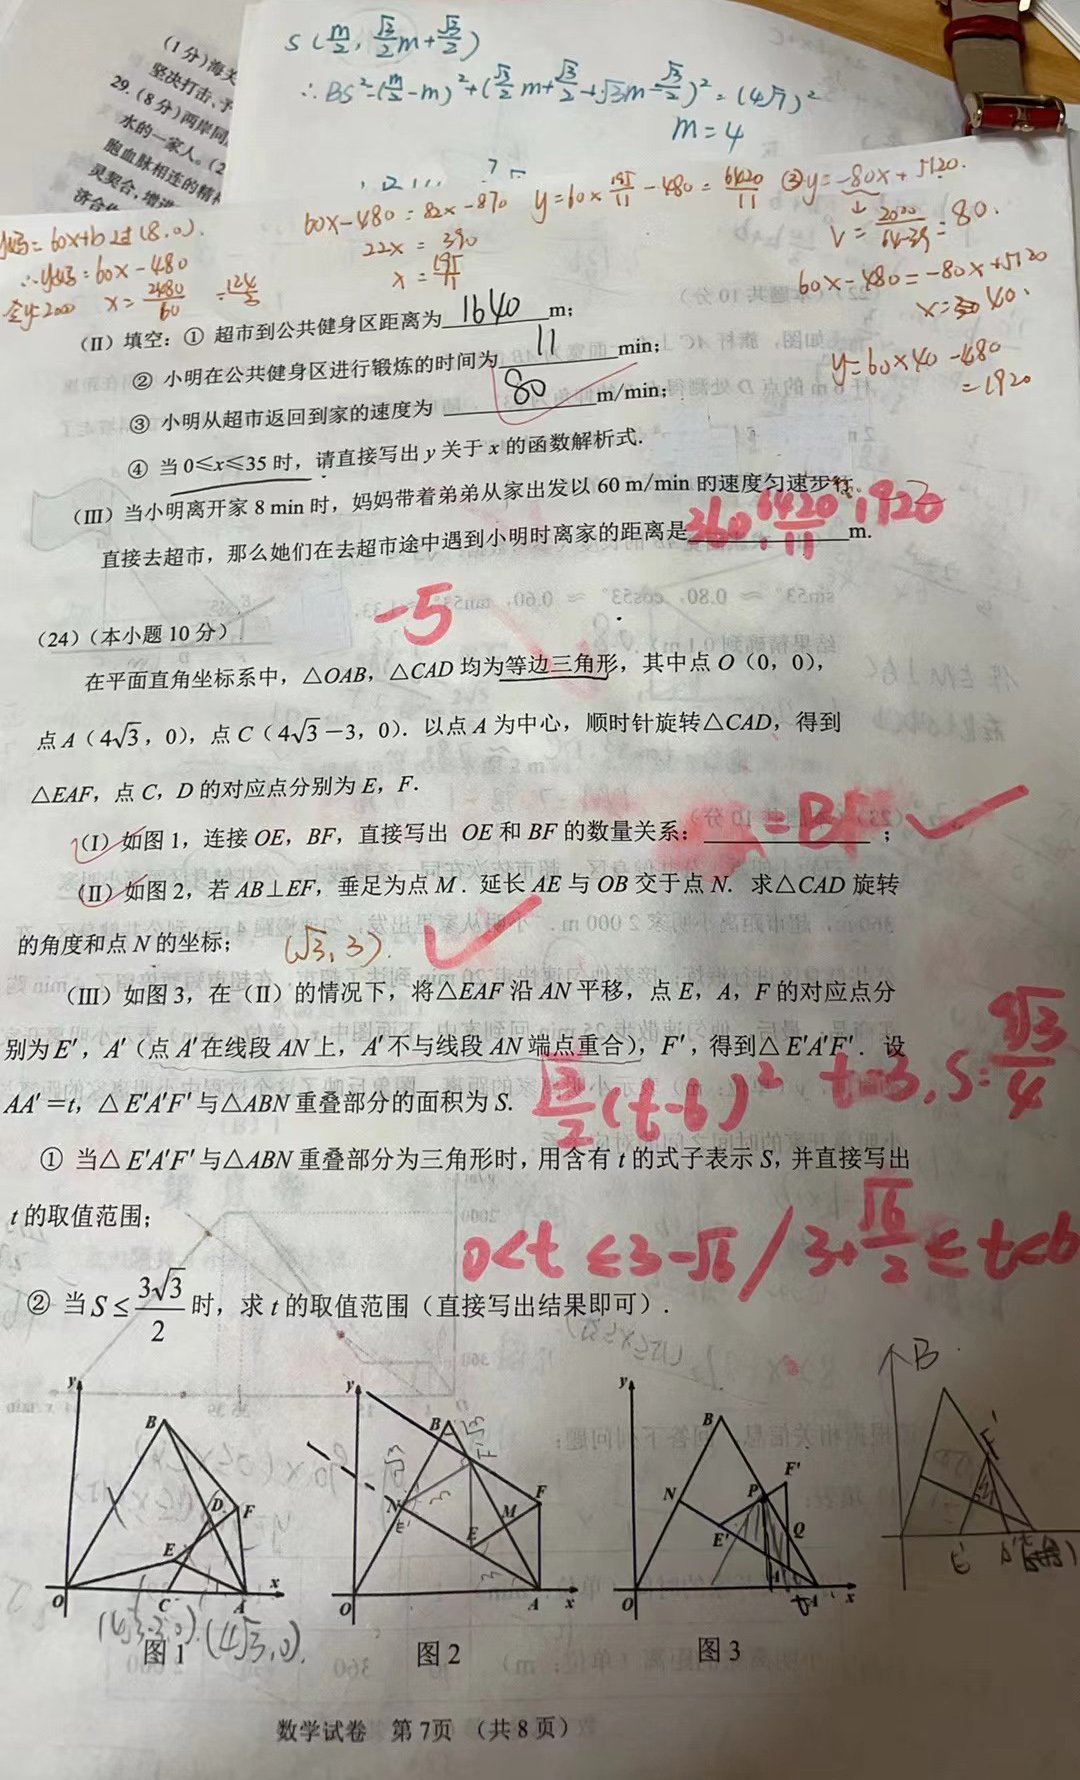 S(m/2, √3/2m+√3/2)
∴BS²=(m/2-m)²+(√3/2m+√3/2-√3m-√3/2)²=(4√7)²
m=4
(1分)海关
坚决打击、予
29.(8分)两岸同
水的一家人。(2
胞血脉相连的精神
灵契合,增进
济合
=60x+b过(8,0).
60x-480=82x-870
y=60×195/11-480=6420/11
②y=-80x+5120.
22x=390
x=195/11
V=2000/64-39=80.
x=2480/60=124/3
60x-480=-80x+5120
x=40.
y=60×40-480
=1920
(II)填空:① 超市到公共健身区距离为1640m;
② 小明在公共健身区进行锻炼的时间为11min;
③ 小明从超市返回到家的速度为80m/min;
④ 当0≤x≤35时,请直接写出y关于x的函数解析式.
(III)当小明离开家8 min时,妈妈带着弟弟从家出发以60 m/min的速度匀速步行
直接去超市,那么她们在去超市途中遇到小明时离家的距离是360,6420/11,1920m.
-5
(24)(本小题10分)
在平面直角坐标系中,△OAB,△CAD均为等边三角形,其中点O(0,0),
点A(4√3,0),点C(4√3-3,0).以点A为中心,顺时针旋转△CAD,得到
△EAF,点C,D的对应点分别为E,F.
(I)如图1,连接OE,BF,直接写出 OE和BF的数量关系:=BF;
(II)如图2,若AB⊥EF,垂足为点M.延长AE与OB交于点N.求△CAD旋转
的角度和点N的坐标; (√3,3).
(III)如图3,在(II)的情况下,将△EAF沿AN平移,点E,A,F的对应点分
别为E′,A′(点A′在线段AN上,A′不与线段AN端点重合),F′,得到△E′A′F′.设
AA′=t,△E′A′F′与△ABN重叠部分的面积为S.
√3/2(t-6)² t=3,S=9√3/4
① 当△E′A′F′与△ABN重叠部分为三角形时,用含有t的式子表示S,并直接写出
t的取值范围;
0<t≤3-√6/3+√6/2≤t<6
② 当S≤3√3/2时,求t的取值范围(直接写出结果即可).
y
B
D
F
E
O
C
A
x
(4√3-3,0).(4√3,0).
图1
y
B
F
N
M
E
O
A
x
图2
y
B
F′
N
P
E′
Q
O
A′
A
x
图3
B
数学试卷 第7页 (共8页)